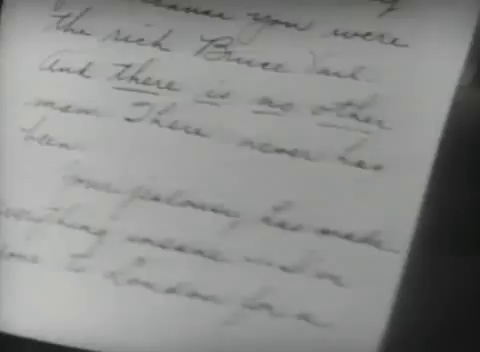 because you were
the rich Bruce Vail
And there is no other
man There never has
been
Your jealousy has made
everything insane and on
to London for a